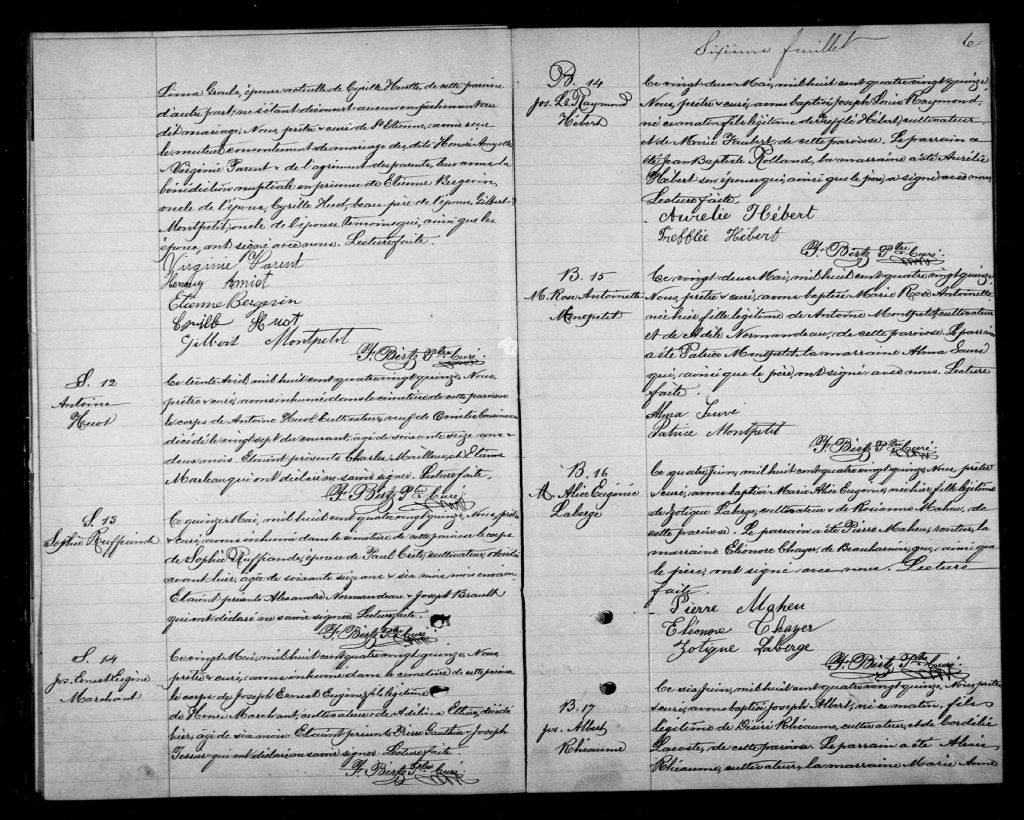 Lima Graule, épouse actuelle de Cyrille Huot de cette paroisse
d'autre part; ne s'étant découvert aucun empêchement au
dit mariage, Nous, prêtre & curé de St Etienne, avons reçu
le mutuel consentement de mariage des dits Honoré Amyot
& Virginie Parent & de l'agrément des parents, leur avons la
bénédiction nuptiale en présence de Etienne Bergevin,
oncle de l'époux, Cyrille Huot, beau-père de l'épouse, Gilbert
Montpetit, oncle de l'épouse témoins qui, ainsi que les
époux, ont signé avec nous. Lecture faite.
Virginie Parent
Henry Amiot
Etienne Bergevin
Cyrille Huot
Gilbert Montpetit
F. Birtz Ptre Curé.
S. 12
Antoine
Huot
Ce trente Avril, mil huit cent quatre vingt quinze, Nous,
prêtre & curé, avons inhumé dans le cimetière de cette paroisse
le corps de Antoine Huot, cultivateur, veuf de Emélie Cousineau
décédé le vingt sept du courant, âgé de soixante seize ans &
deux mois. Etaient présents Charles Mailleux et Etienne
Marleau qui ont déclaré ne savoir signer. Lecture faite.
F. Birtz Ptre Curé.
S. 13
Sophie Ruffiande
Ce quinze Mai, mil huit cent quatre vingt quinze, Nous, prêtre
& curé, avons inhumé dans le cimetière de cette paroisse le corps
de Sophie Ruffiande, épouse de Paul Crite, cultivateur, décédée
avant hier, âgée de soixante six ans & six mois moins environ
Etaient présents Alexandre Normandeau & Joseph Brault
qui ont déclaré ne savoir signer. Lecture faite.
F. Birtz Ptre Curé.
S. 14
Jos. Ernest Eugène
Marchant
Ce vingt Mai, mil huit cent quatre vingt quinze, Nous
prêtre & curé, avons inhumé dans le cimetière de cette paroisse
le corps de Joseph Ernest Eugène, fils légitime
de Henri Marchant, cultivateur & de Adélina Ethier, décédé
hier, âgé de six mois. Etaient présents Pierre Gauthier & Joseph
Tessier qui ont déclaré ne savoir signer. Lecture faite.
F. Birtz Ptre Curé.
Sixième feuillet 6
B. 14
Jos. Ls. Raymond
Hébert
Ce vingt deux Mai, mil huit cent quatre vingt quinze,
Nous, prêtre & curé, avons baptisé Joseph Louis Raymond,
né ce matin, fils légitime de Trefflé Hébert, cultivateur
et de Marie Faubert, de cette paroisse. Le parrain a
été Jean Baptiste Rolland, la marraine a été Aurélie
Hébert son épouse qui, ainsi que le père, a signé avec nous.
Lecture faite.
Aurelie Hébert
Treffleé Hébert
F. Birtz Ptre Curé.
B. 15
M. Rose Antoinette
Montpetit
Ce vingt deux Mai, mil huit cent quatre vingt quinze,
Nous, prêtre & curé, avons baptisé Marie Rose Antoinette
née hier fille légitime de Antoine Montpetit, cultivateur
et de Odile Normandeau, de cette paroisse. Le parrain
a été Patrice Montpetit, la marraine Alma Sauvé
qui, ainsi que le père, ont signé avec nous. Lecture
faite.
Alma Suvé
Patrice Montpetit
F. Birtz Ptre Curé.
B. 16
M. Alice Eugénie
Laberge
Ce quatre Juin, mil huit cent quatre vingt quinze, Nous, prêtre
& curé, avons baptisé Marie Alice Eugénie, née hier fille légitime
de Zotique Laberge, cultivateur & de Rosianne Maheu, de
cette paroisse. Le parrain a été Pierre Maheu, rentier, la
marraine Eléonore Thayer, de Beauharnois, qui, ainsi que
le père, ont signé avec nous. Lecture
faite.
Pierre Maheu
Eléonore Thayer
Zotique Laberge
F. Birtz Ptre Curé.
B. 17
Jos. Albert
Rhéaume
Ce six Juin, mil huit cent quatre vingt quinze, Nous, prêtre
& curé, avons baptisé Joseph Albert, né ce matin, fils
légitime de Désiré Rhéaume, cultivateur, et de Cordélie
Lacoste, de cette paroisse. Le parrain a été Alexis
Rhéaume, cultivateur, la marraine Marie Anne